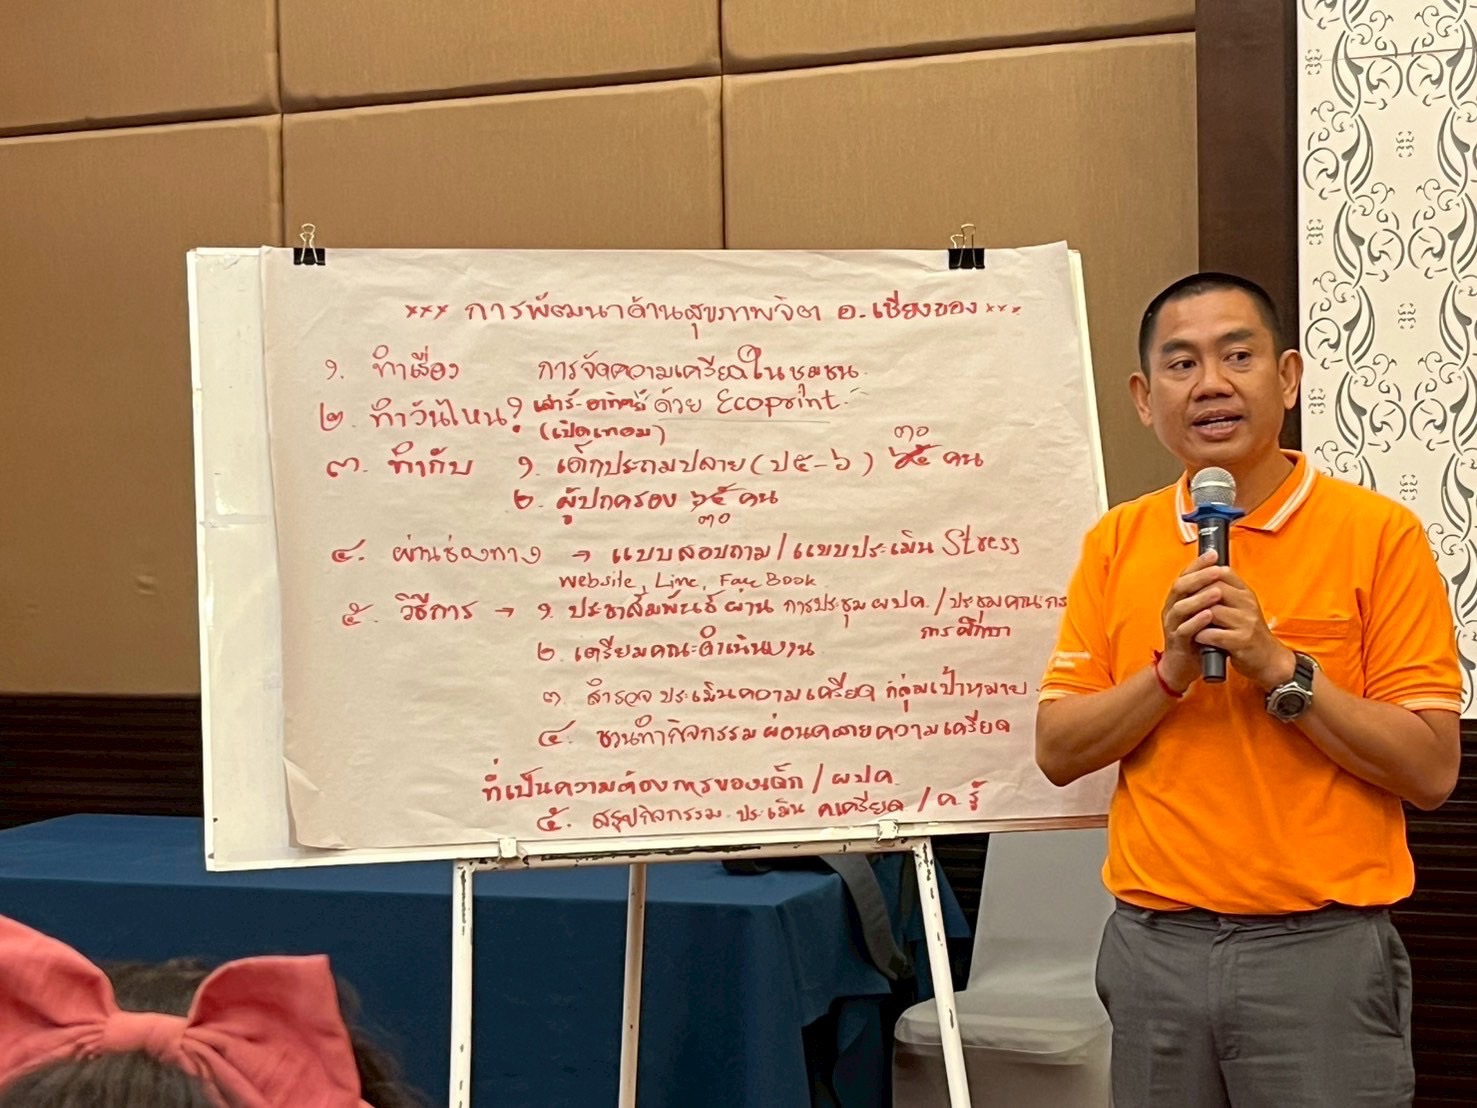 *** การพัฒนาด้านสุขภาพจิต อ.เชียงของ ***
๑. ทำเรื่อง การจัดความเครียดในชุมชน
๒. ทำวันไหน? เสาร์-อาทิตย์ ด้วย Ecoprint
(เปิดเทอม)
๓๐
๓. ทำกับ ๑. เด็กประถมปลาย (ป๕-๖) คน
๒. ผู้ปกครอง คน
๓๐
๔. ผ่านช่องทาง → แบบสอบถาม/แบบประเมิน Stress
website, Line, FaceBook
๕. วิธีการ → ๑. ประชาสัมพันธ์ ผ่าน การประชุม ผปค. / ประชุมคณะกร
การศึกษา
๒. เตรียมคณะดำเนินงาน
๓. สำรวจ ประเมินความเครียด กลุ่มเป้าหมาย
๔. ชวนทำกิจกรรม ผ่อนคลายความเครียด
ที่เป็นความต้องการของเด็ก / ผปค.
๕. สรุปกิจกรรม ประเมิน ค.เครียด / ค.รู้